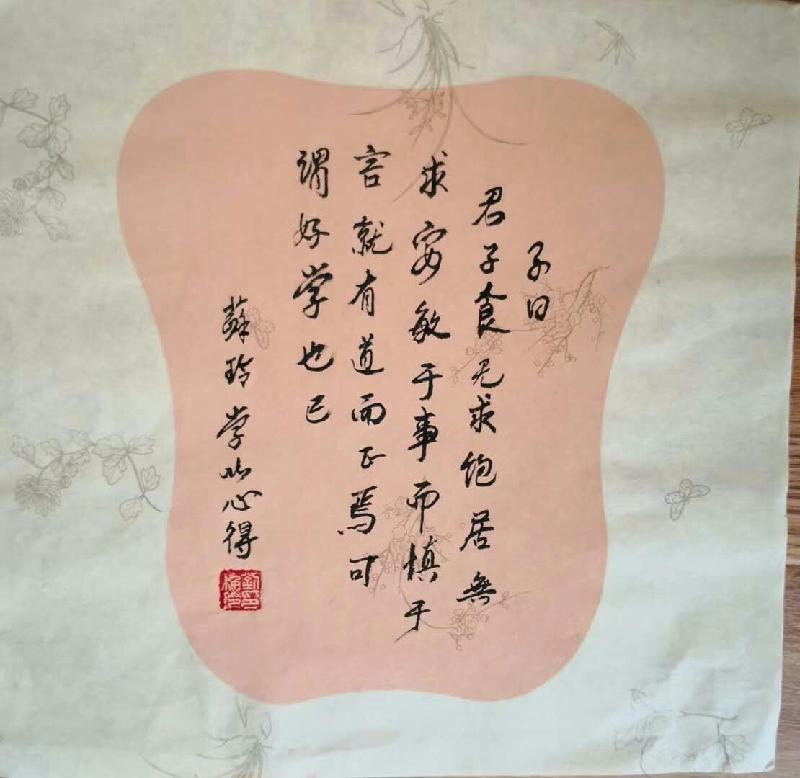 子曰
君子食无求饱居無
求安敏于事而慎于
言就有道而正焉可
謂好学也已
蘇玲学以心得